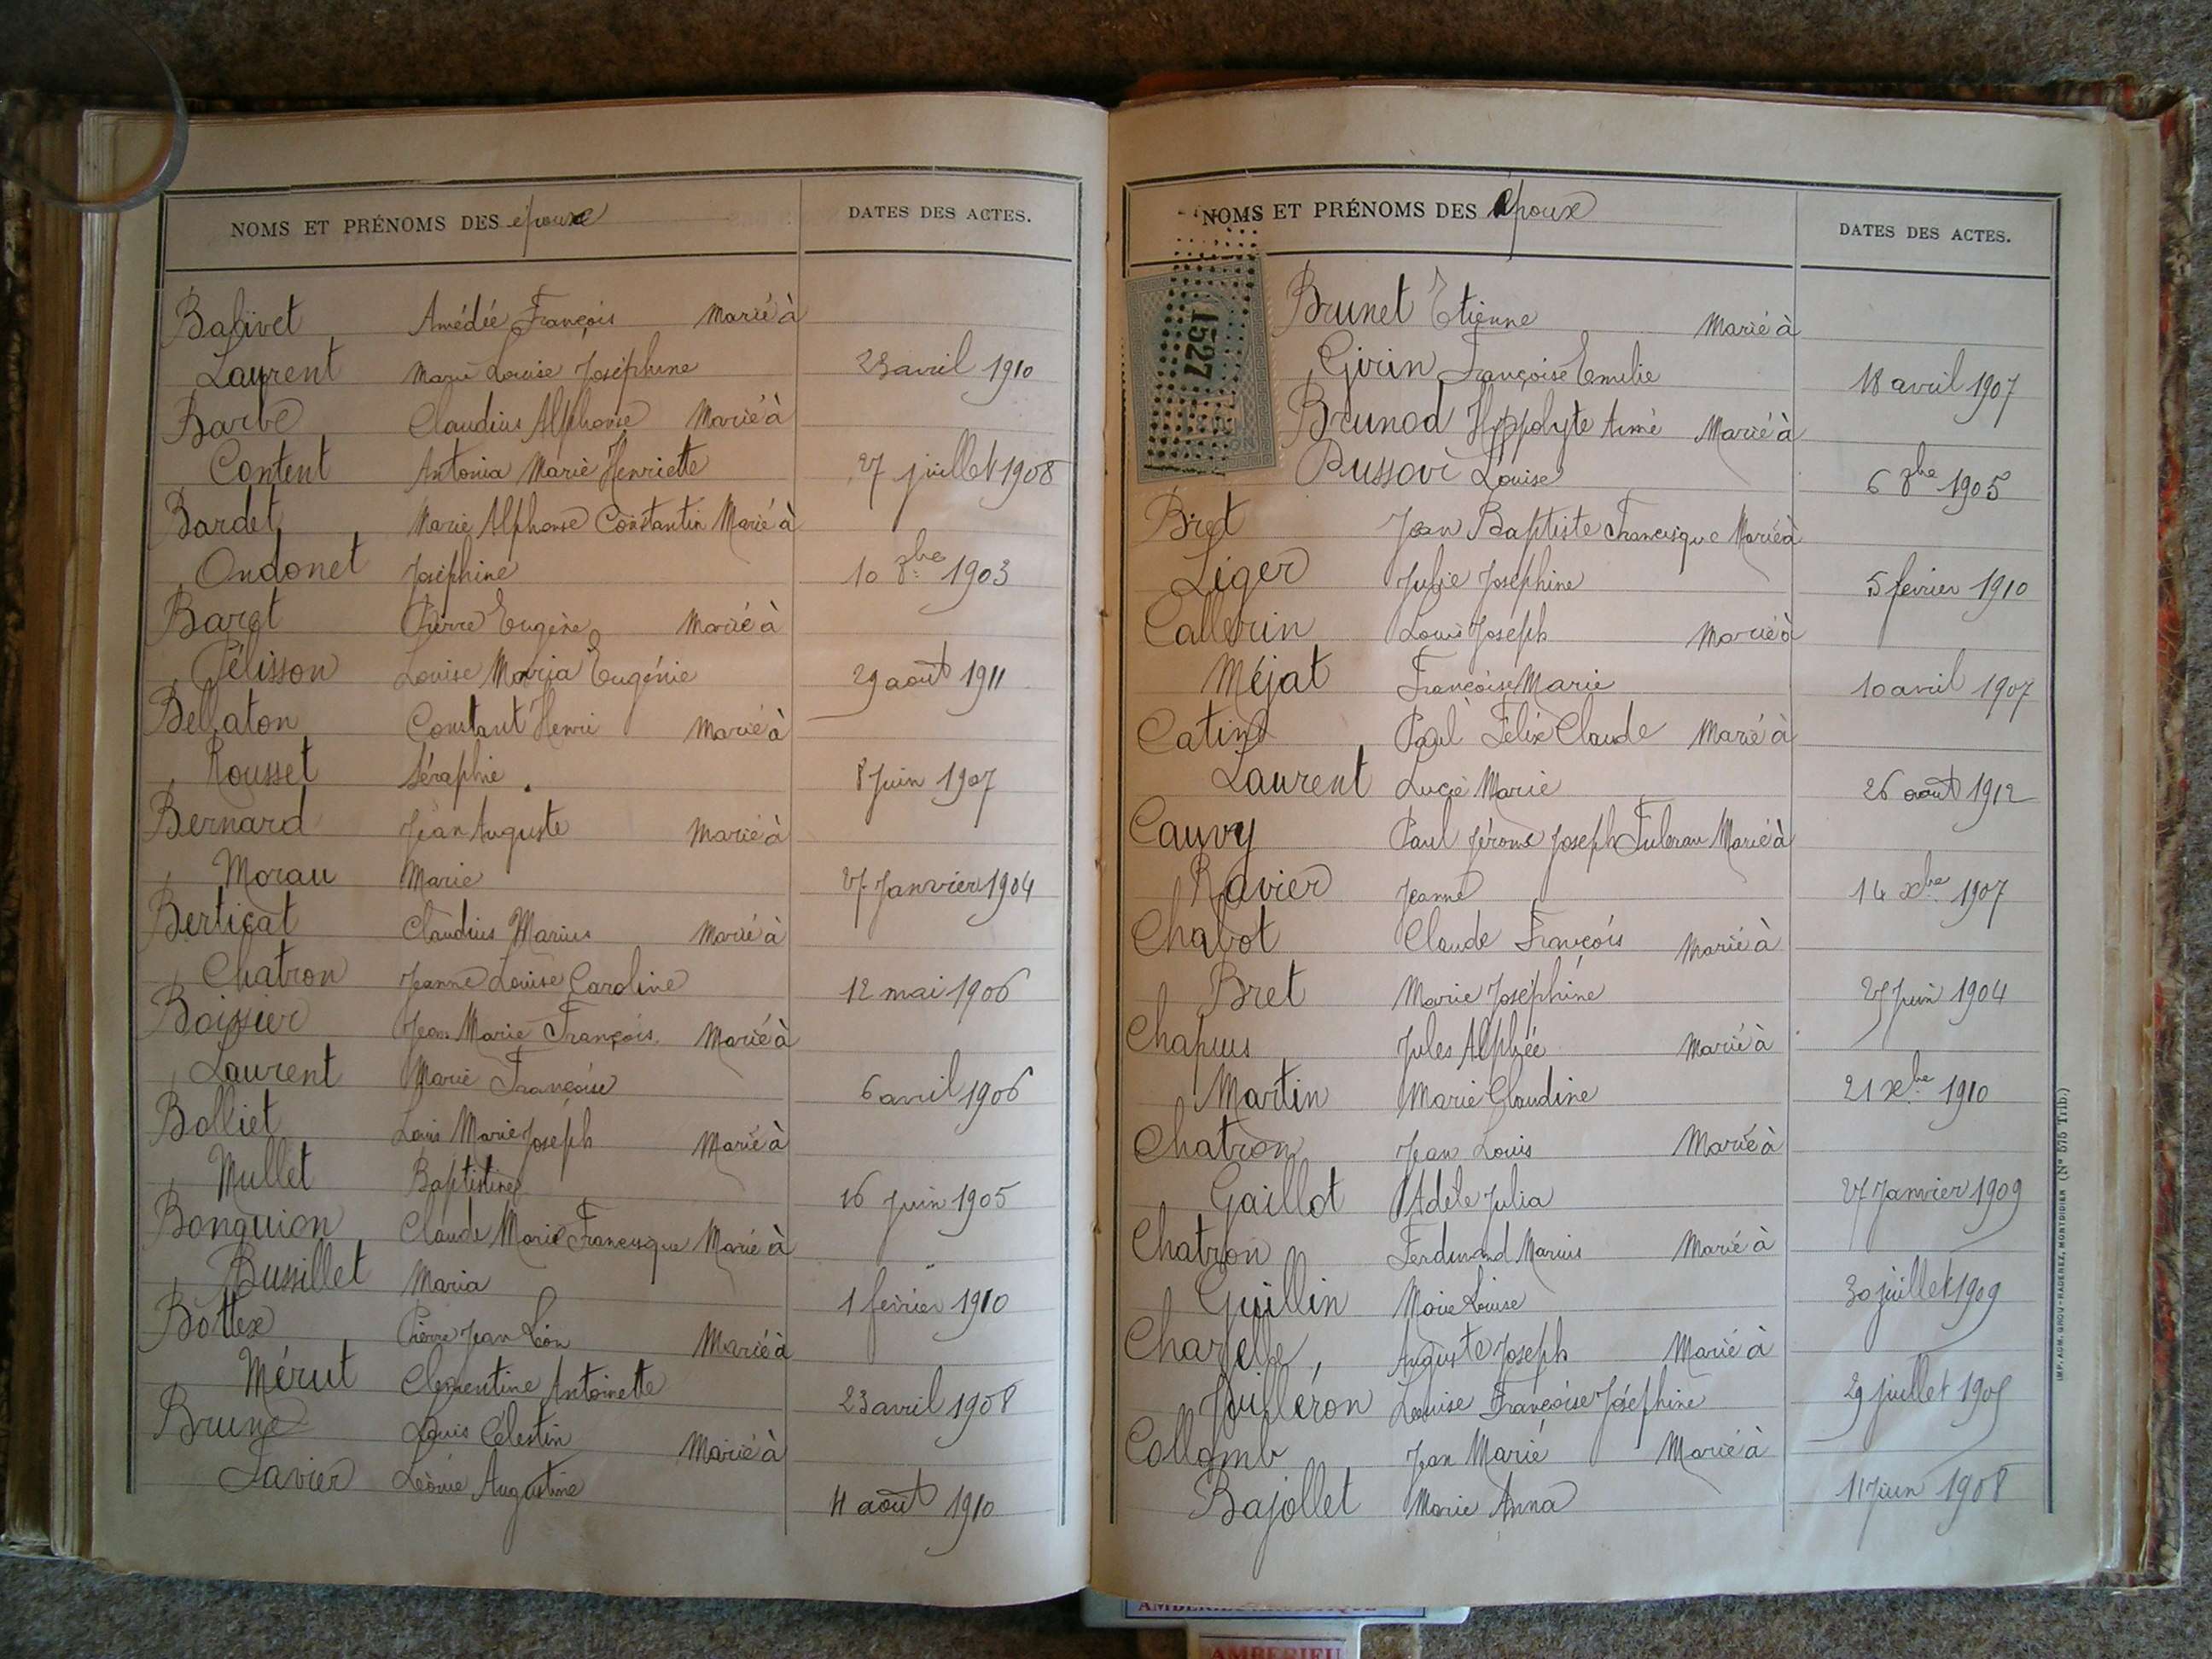 NOMS ET PRÉNOMS DES époux DATES DES ACTES.
Balivet Amédée François Marié à
Laurent Marie Louise Joséphine 23 avril 1910
Barbe Claudius Alphonse Marié à
Content Antonia Marie Henriette 27 juillet 1908
Bardet Marie Alphonse Constantin Marié à
Ondonet Joséphine 10 8bre 1903
Baret Pierre Eugène Marié à
Pélisson Louise Maria Eugénie 29 août 1911
Bellaton Constant Henri Marié à
Rousset Séraphie 8 Juin 1907
Bernard Jean Auguste Marié à
Morau Marie 27 Janvier 1904
Bertiçat Claudius Marius Marié à
Chatron Jeanne Louise Caroline 12 mai 1906
Jean Marie François Marié à
Laurent Marie Françoise 6 avril 1906
Bolliet Louis Marie Joseph Marié à
Mullet Baptistine 16 Juin 1905
Bonguion Claude Marie Francisque Marié à
Bussillet Maria 1 février 1910
Bottex Pierre Jean Léon Marié à
Mérut Clementine Antoinette 23 avril 1908
Brune Louis Célestin Marié à
Favier Léonie Augustine 11 août 1910
NOMS ET PRÉNOMS DES époux DATES DES ACTES.
1527
Brunet Etienne Marié à
Girin Françoise Emilie 18 avril 1907
Brunod Hyppolyte Aimé Marié à
Louise 6 8bre 1905
Bret Jean Baptiste Francisque Marié à
Liger Julie Joséphine 5 février 1910
Callerin Louis Joseph Marié à
Méjat Françoise Marie 10 avril 1907
Catin Paul Félix Claude Marié à
Laurent Lucie Marie 26 août 1912
Cauvy Paul Jérome Joseph Fulcran Marié à
Ravier Jeanne 14 xbre 1907
Chabot Claude François Marié à
Bret Marie Joséphine 27 Juin 1904
Chapuis Jules Alphée Marié à
Martin Marie Claudine 21 xbre 1910
Chatron Jean Louis Marié à
Gaillot Adèle Julia 27 Janvier 1909
Chatron Ferdinand Marius Marié à
Guillin Marie Louise 30 juillet 1909
Auguste Joseph Marié à
Juilléron Louise Françoise Joséphine 29 juillet
Collomb Jean Marie Marié à
Bajollet Marie Anna 11 Juin 1908
(N° 575 Trib.)
AMBERIEU